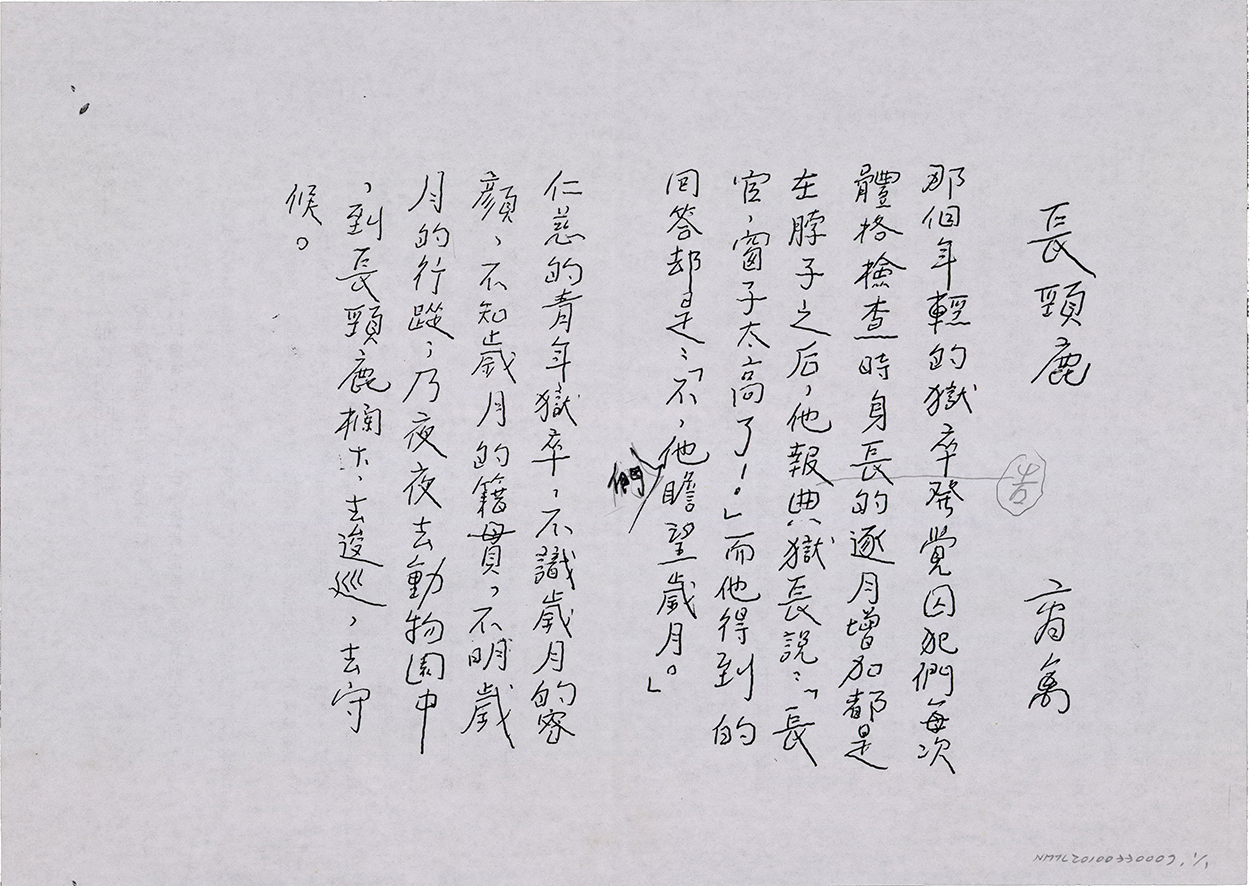 長頸鹿　商禽
告
那個年輕的獄卒發覺囚犯們每次
體格檢查時身長的逐月增加都是
在脖子之后，他報典獄長說：「長
官，窗子太高了！」而他得到的
回答却是：「不，他們瞻望歲月。」
仁慈的青年獄卒，不識歲月的容
顏，不知歲月的籍貫，不明歲
月的行蹤；乃夜夜去動物園中
，到長頸鹿欄下，去逡巡，去守
候。